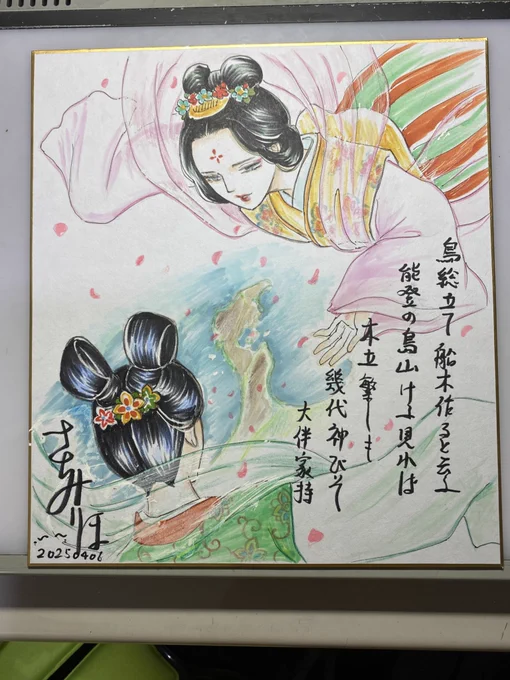 鳥総立て 船木伐るといふ
能登の島山 けふ見れは
木立繁しも
幾代神びそ
大伴家持
さちみりほ
20250406